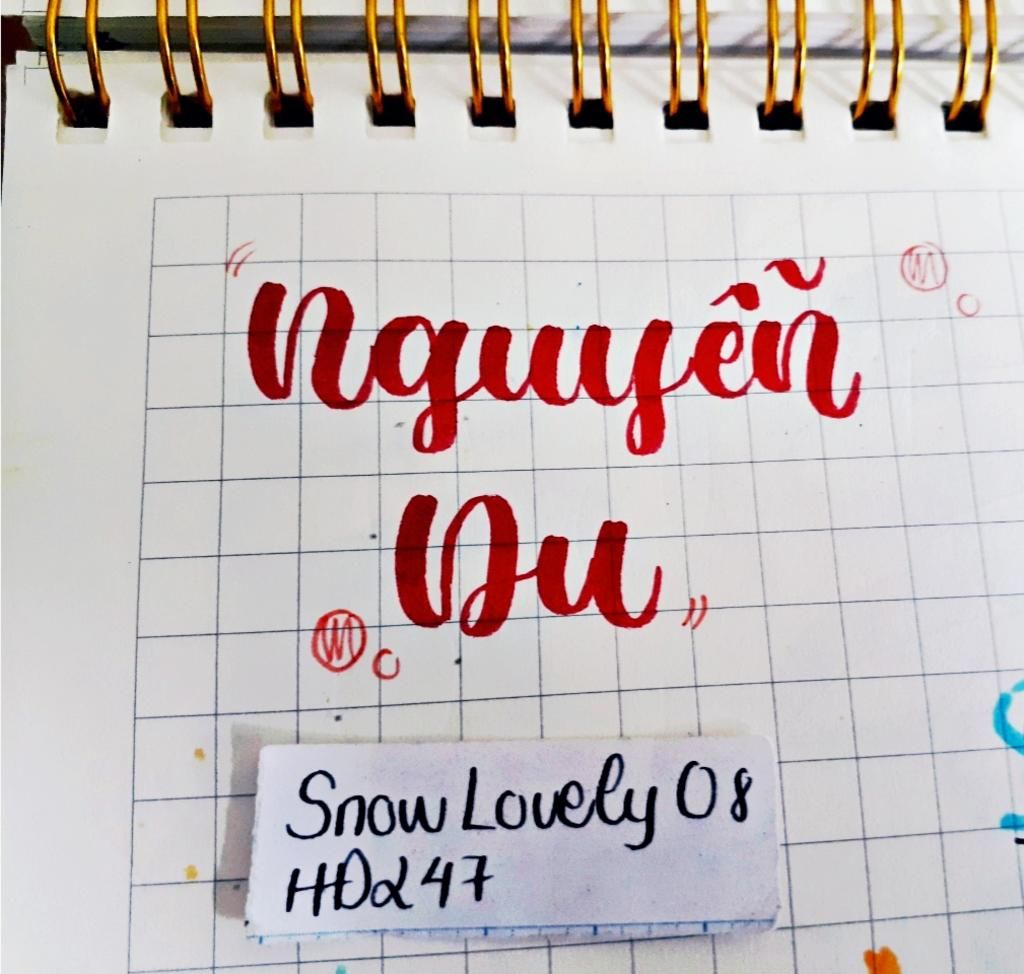 "Nguyễn
Du"
Snow Lovely 08
HĐ247